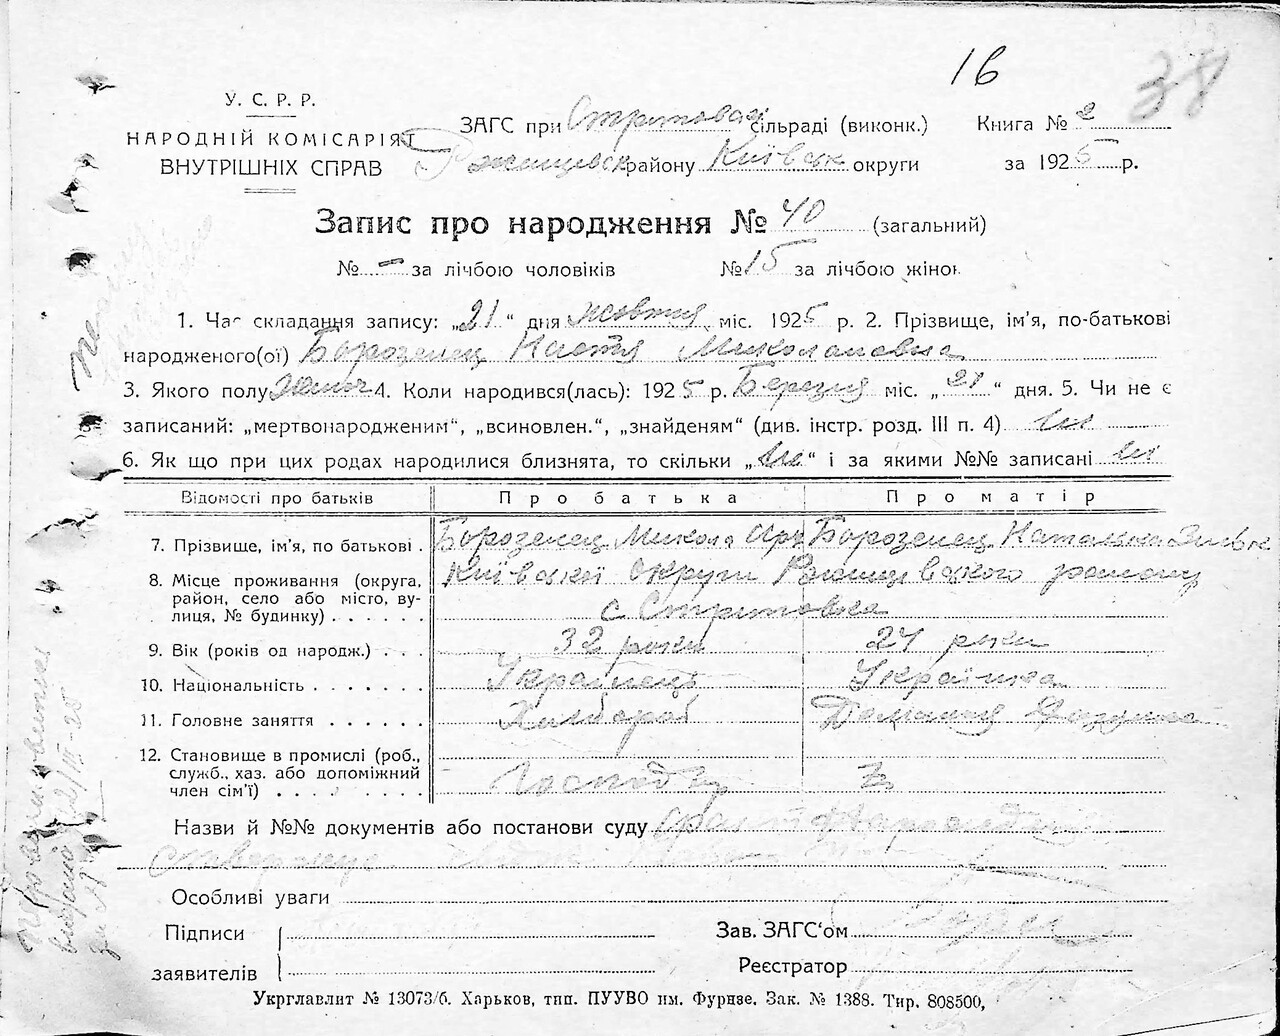 16
38
У. С. Р. Р.
НАРОДНІЙ КОМІСАРІЯТ
ВНУТРІШНІХ СПРАВ
ЗАГС при Стритовсій сільраді (виконк.) Книга № 2
Ржищевськ району Київськ округи за 1925 р.
Запис про народження № 40 (загальний)
№ – за лічбою чоловіків № 15 за лічбою жінок
1. Час складання запису: „21“ дня жовтня міс. 1925 р. 2. Прізвище, ім’я, по-батькові
народженого(ої) Борозенец Настя Миколаовна
3. Якого полу жіноч 4. Коли народився(лась): 1925 р. Березня міс. „21“ дня. 5. Чи не є
записаний: „мертвонародженим“, „всиновлен.“, „знайденям“ (див. інстр. розд. III п. 4) ні
6. Як що при цих родах народилися близнята, то скільки „ні“ і за якими №№ записані ні
Відомості про батьків Про батька Про матір
7. Прізвище, ім’я, по батькові . Борозенец Микола Борозенец Наталка
8. Місце проживання (округа, Київської округи Ржищевського району
район, село або місто, ву- с Стритовка
лиця, № будинку) . . . . . .
9. Вік (років од народж.) . . . 32 роки 24 роки
10. Національність . . . . . . . Украінець Українка
11. Головне заняття . . . . . . Хлібороб Домашня
12. Становище в промислі (роб.,
служб., хаз. або допоміжний Господар
член сім’ї) . . . . . . . .
Назви й №№ документів або постанови суду
Особливі уваги
Підписи Зав. ЗАГС‘ом
заявителів Реєстратор
Укрглавлит № 13073/б. Харьков, тип. ПУУВО им. Фрунзе. Зак. № 1388. Тир. 808500,